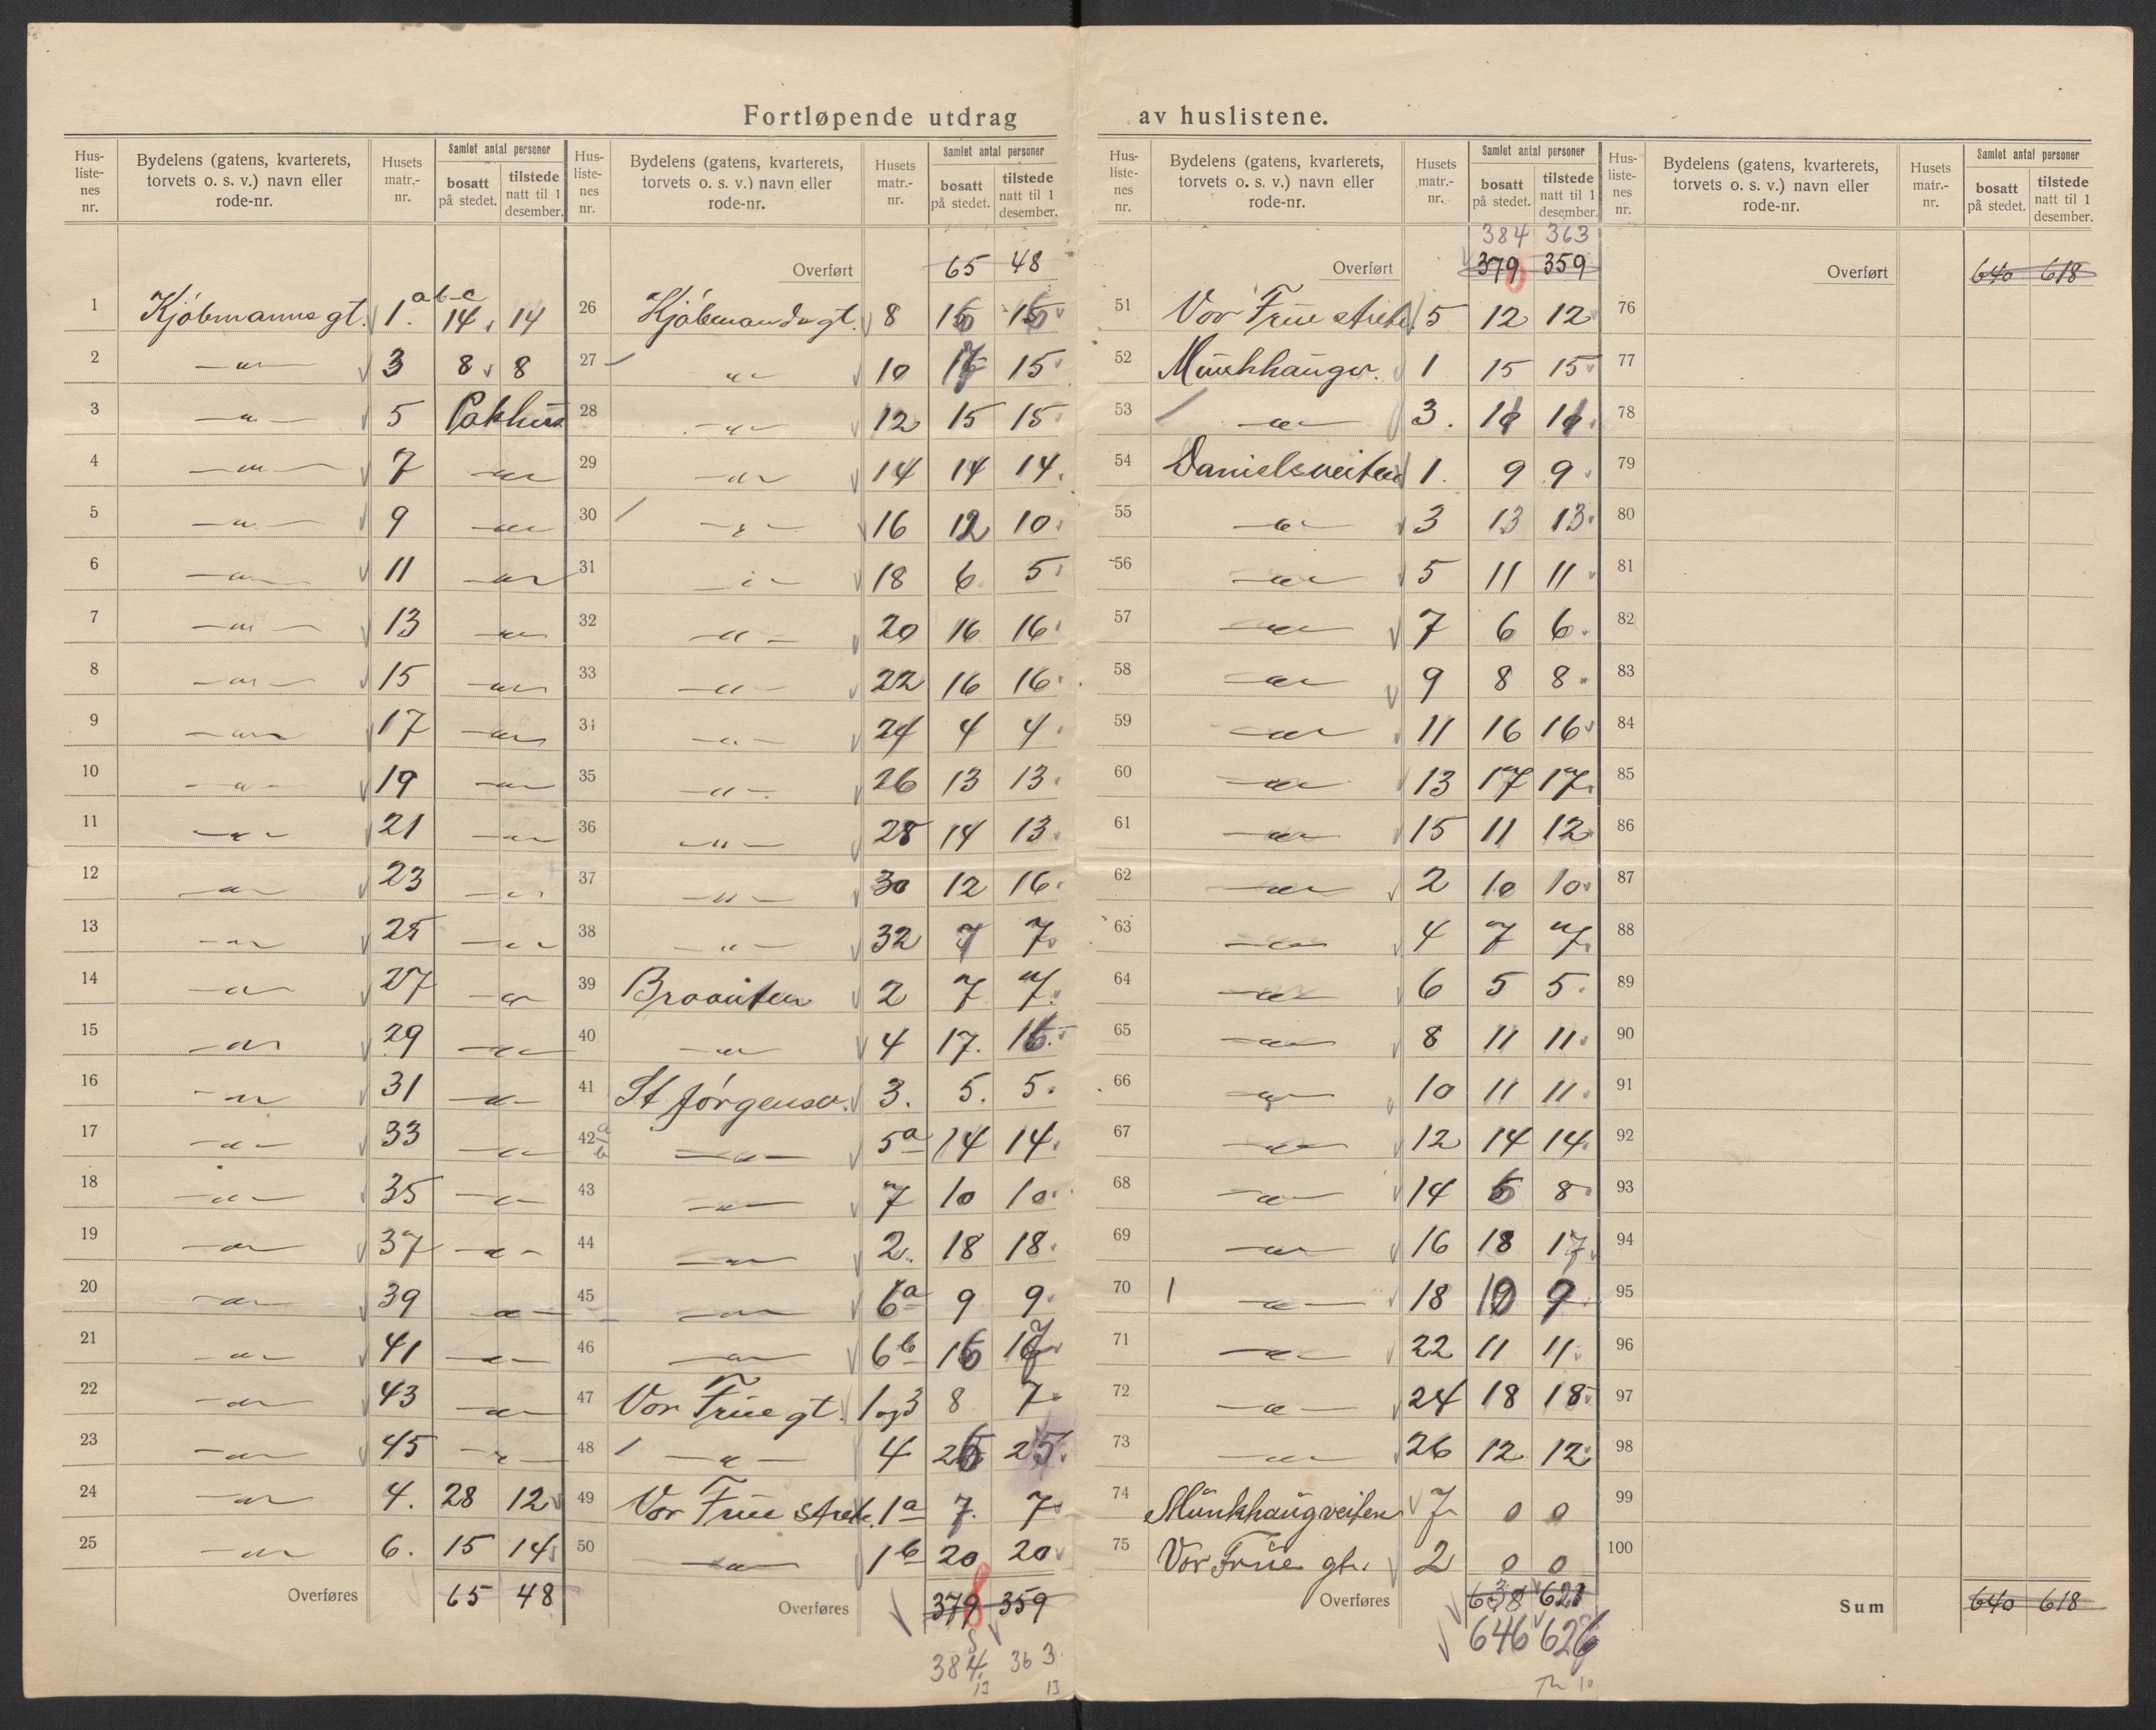 Fortløpende utdrag av huslistene.
Hus-liste-nes nr. Bydelens (gatens, kvarterets, torvets o. s. v.) navn eller rode-nr. Husets matr.-nr. Samlet antal personer bosatt på stedet. tilstede natt til 1 desember.
1 Kjøbmanns gt. 1. a b c 14 14
2 —"— 3 8 8
3 —"— 5 Pakhus
4 —"— 7 —"—
5 —"— 9 —"—
6 —"— 11 —"—
7 —"— 13 —"—
8 —"— 15 —"—
9 —"— 17 —"—
10 —"— 19 —"—
11 —"— 21 —"—
12 —"— 23 —"—
13 —"— 25 —"—
14 —"— 27 —"—
15 —"— 29 —"—
16 —"— 31 —"—
17 —"— 33 —"—
18 —"— 35 —"—
19 —"— 37 —"—
20 —"— 39 —"—
21 —"— 41 —"—
22 —"— 43 —"—
23 —"— 45 —"—
24 —"— 4. 28 12
25 —"— 6. 15 14
Overføres 65 48
Hus-liste-nes nr. Bydelens (gatens, kvarterets, torvets o. s. v.) navn eller rode-nr. Husets matr.-nr. Samlet antal personer bosatt på stedet. tilstede natt til 1 desember.
Overført 65 48
26 Kjøbmands gt. 8 16 16
27 —"— 10 17 15
28 —"— 12 15 15
29 —"— 14 14 14
30 —"— 16 12 10
31 —"— 18 6 5
32 —"— 20 16 16
33 —"— 22 16 16
34 —"— 24 4 4
35 —"— 26 13 13
36 —"— 28 14 13
37 —"— 30 12 16
38 —"— 32 7 7
39 2 7 7
40 —"— 4 17. 16
41 St Jørgensv. 3. 5. 5.
42 a b —"— 5a 14 14
43 —"— 7 10 10
44 —"— 2. 18 18
45 —"— 6a 9 9
46 —"— 6b 16 17
47 Vor Frue gt. 1 og 3 8 7
48 —"— 4 26 25
49 Vor Frue stræde. 1a 7 7
50 —"— 1b 20 20
Overføres 379 359
384 363
13 13
Hus-liste-nes nr. Bydelens (gatens, kvarterets, torvets o. s. v.) navn eller rode-nr. Husets matr.-nr. Samlet antal personer bosatt på stedet. tilstede natt til 1 desember.
384 363
Overført 379 359
51 Vor Frue 5 12 12
52 Munkhaugv. 1 15 15
53 —"— 3.
54 Danielsveiten 1. 9 9
55 —"— 3 13 13
56 —"— 5 11 11
57 —"— 7 6 6
58 —"— 9 8 8
59 —"— 11 16 16
60 —"— 13 17 17
61 —"— 15 11 12
62 —"— 2 10 10
63 —"— 4 7 7
64 —"— 6 5 5
65 —"— 8 11 11
66 —"— 10 11 11
67 —"— 12 14 14
68 —"— 14 6 8
69 —"— 16 18 17
70 —"— 18 10 9
71 —"— 22 11 11
72 —"— 24 18 18
73 —"— 26 12 12
74 Munkhaugveiten 7 0 0
75 Vor Frue gt. 2 0 0
Overføres 638 621
646 626
Hus-liste-nes nr. Bydelens (gatens, kvarterets, torvets o. s. v.) navn eller rode-nr. Husets matr.-nr. Samlet antal personer bosatt på stedet. tilstede natt til 1 desember.
Overført 640 618
76
77
78
79
80
81
82
83
84
85
86
87
88
89
90
91
92
93
94
95
96
97
98
99
100
Sum 640 618